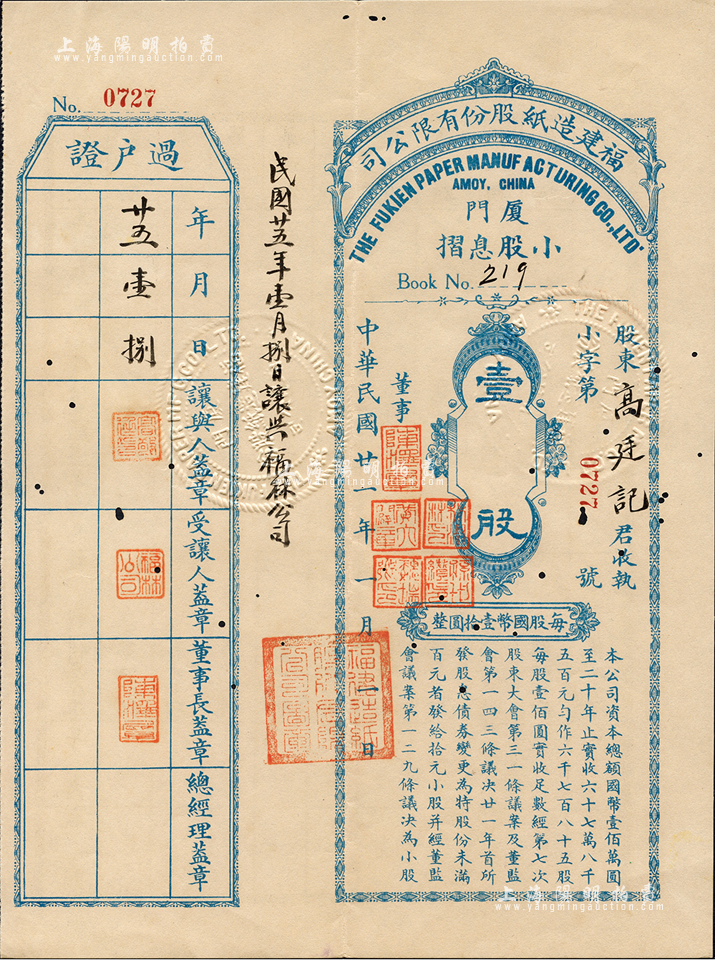 上海陽明拍賣
www.yangmingauction.com
上海陽明拍賣
www.yangmingauction.com
福建造紙股份有限公司
THE FUKIEN PAPER MANUFACTURING CO., LTD.
AMOY, CHINA
厦門
小股息摺
Book No. 219
股東高廷記君收執
小字第0727號
壹股
每股國幣壹拾圓整
董事
中華民國廿一年一月一日
本公司資本總額國幣壹佰萬圓
至二十年止實收六十七萬八千
五百元勻作六千七百八十五股
每股壹佰圓實收足數經第七次
股東大會第三一條議案及董監
會第一四三條議決廿一年首所
發股息債券變更為特股份未滿
百元者發給拾元小股并經董監
會議案第一二九條議決為小股
民國廿五年壹月捌日讓與福林公司
No. 0727
過戶證
年月日
讓與人蓋章
受讓人蓋章
董事長蓋章
總經理蓋章
廿五
壹
捌
福林公司
上海陽明拍賣
www.yangmingauction.com
上海陽明拍賣
www.yangmingauction.com